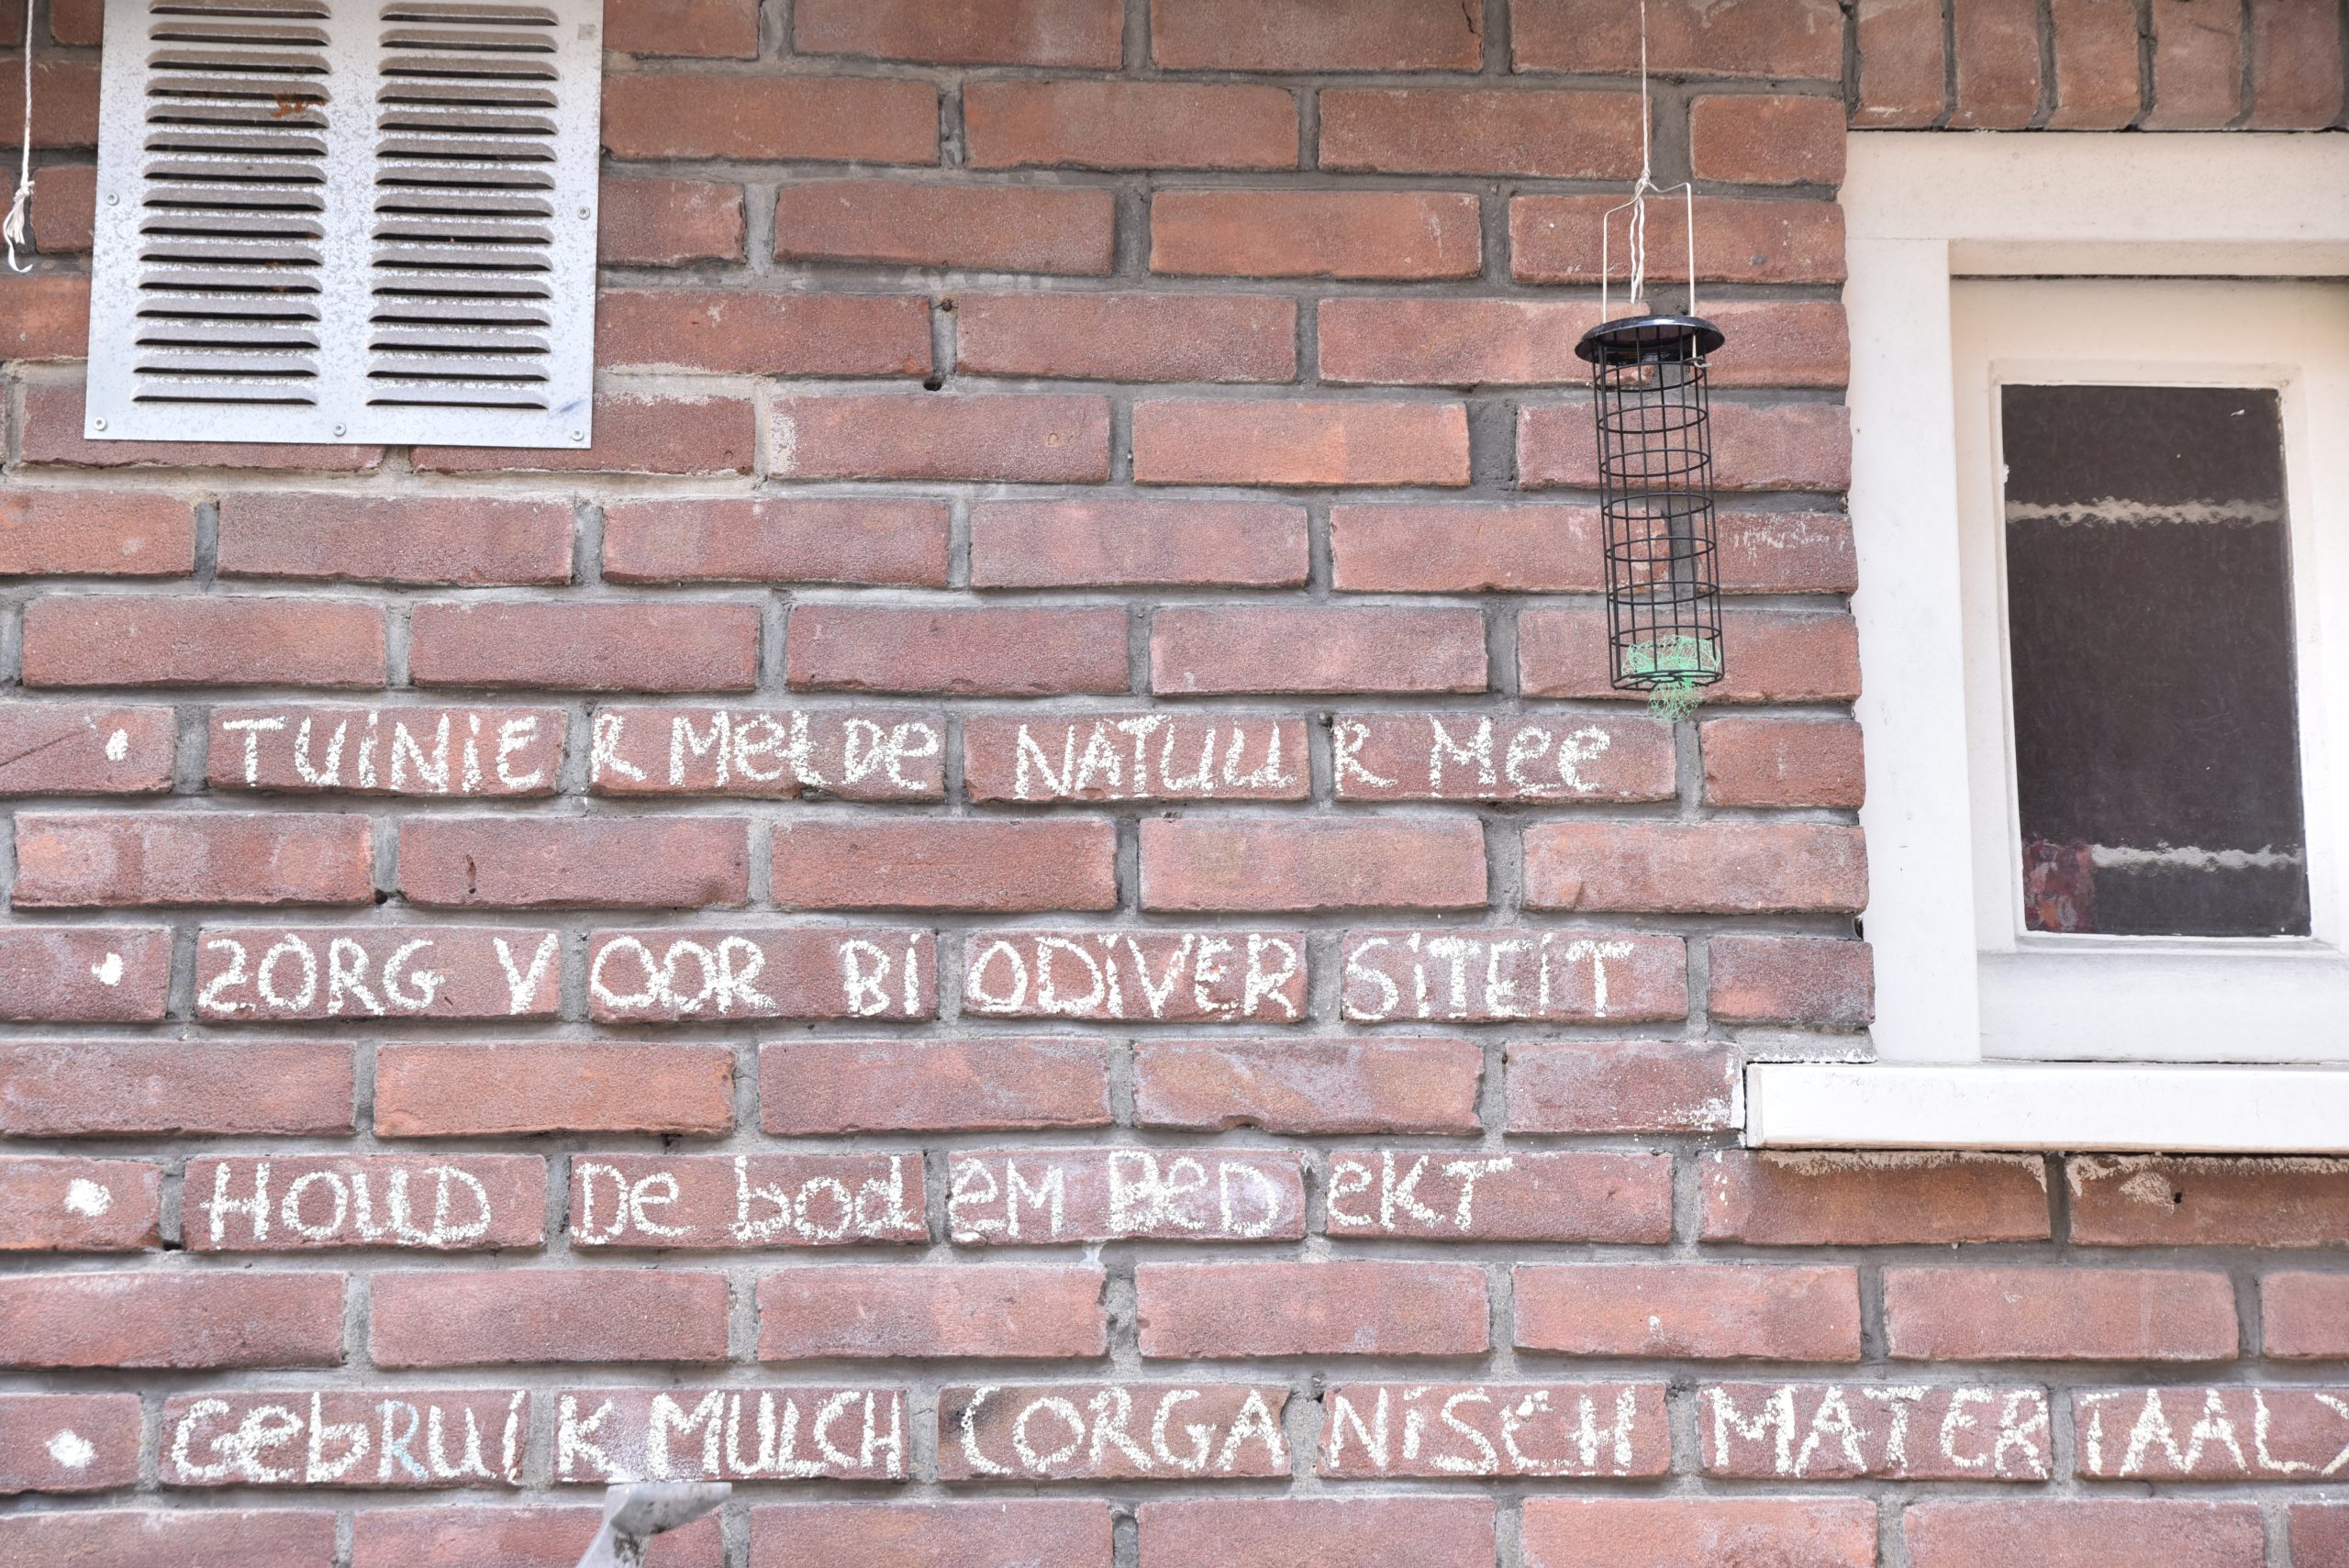 • TUiNiER MeLDe NATUUR Mee
• ZORG VOOR BiODiVERSiTEiT
• HOUD De bodeM BeDeKT
• GebRUiK MULCH (ORGANiSCH MATERiAAL)